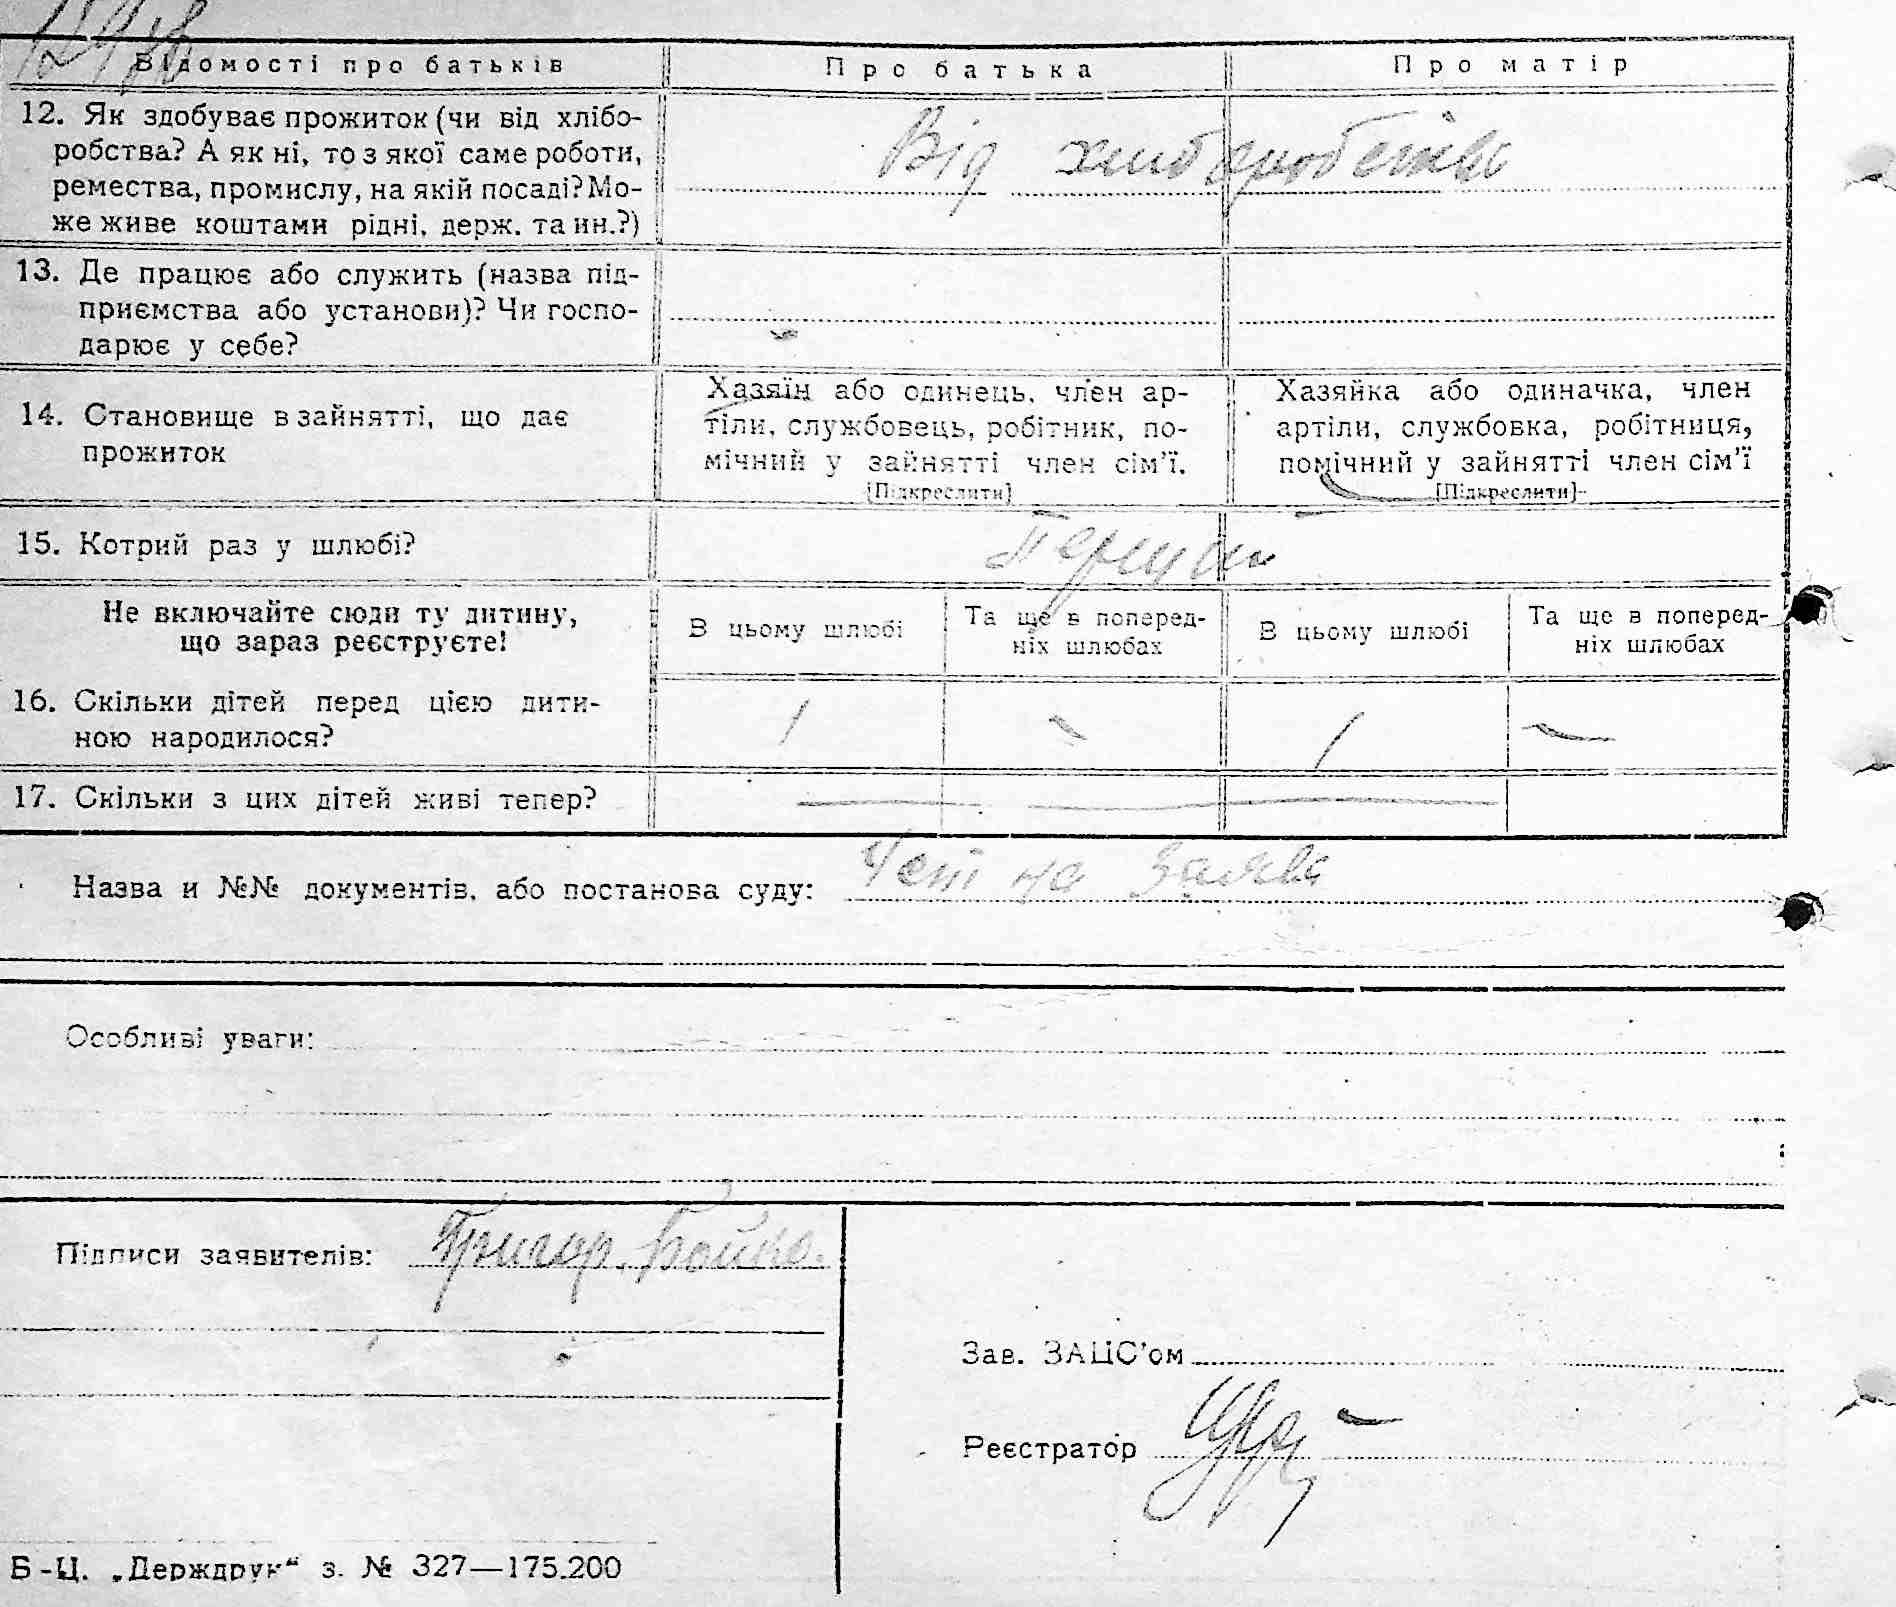 Відомості про батьків
Про батька
Про матір
12. Як здобуває прожиток (чи від хлібо-
робства? А як ні, то з якої саме роботи,
ремества, промислу, на якій посаді? Мо-
же живе коштами рідні, держ. та ин.?)
Від хліборобства
13. Де працює або служить (назва під-
приємства або установи)? Чи госпо-
дарює у себе?
14. Становище в зайнятті, що дає
прожиток
Хазяїн або одинець, член ар-
тіли, службовець, робітник, по-
мічний у зайнятті член сім'ї.
[Підкреслити]
Хазяйка або одиначка, член
артіли, службовка, робітниця,
помічний у зайнятті член сім'ї
[Підкреслити]
15. Котрий раз у шлюбі?
Не включайте сюди ту дитину,
що зараз реєструєте!
В цьому шлюбі
Та ще в поперед-
ніх шлюбах
В цьому шлюбі
Та ще в поперед-
ніх шлюбах
16. Скільки дітей перед цією дити-
ною народилося?
1 - 1 -
17. Скільки з цих дітей живі тепер?
Назва и №№ документів, або постанова суду:
Особливі уваги:
Підписи заявителів: Григор. Бойко.
Зав. ЗАЦС'ом
Реєстратор
Б-Ц. „Держдрук“ з. № 327—175.200